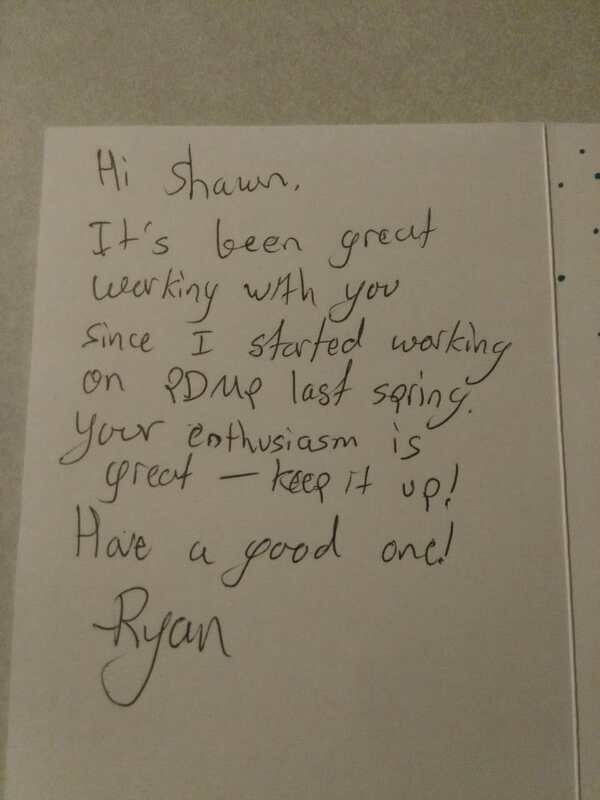 Hi Shawn,
It's been great
working with you
since I started working
on PDMP last spring.
Your enthusiasm is
great — keep it up!
Have a good one!
-Ryan